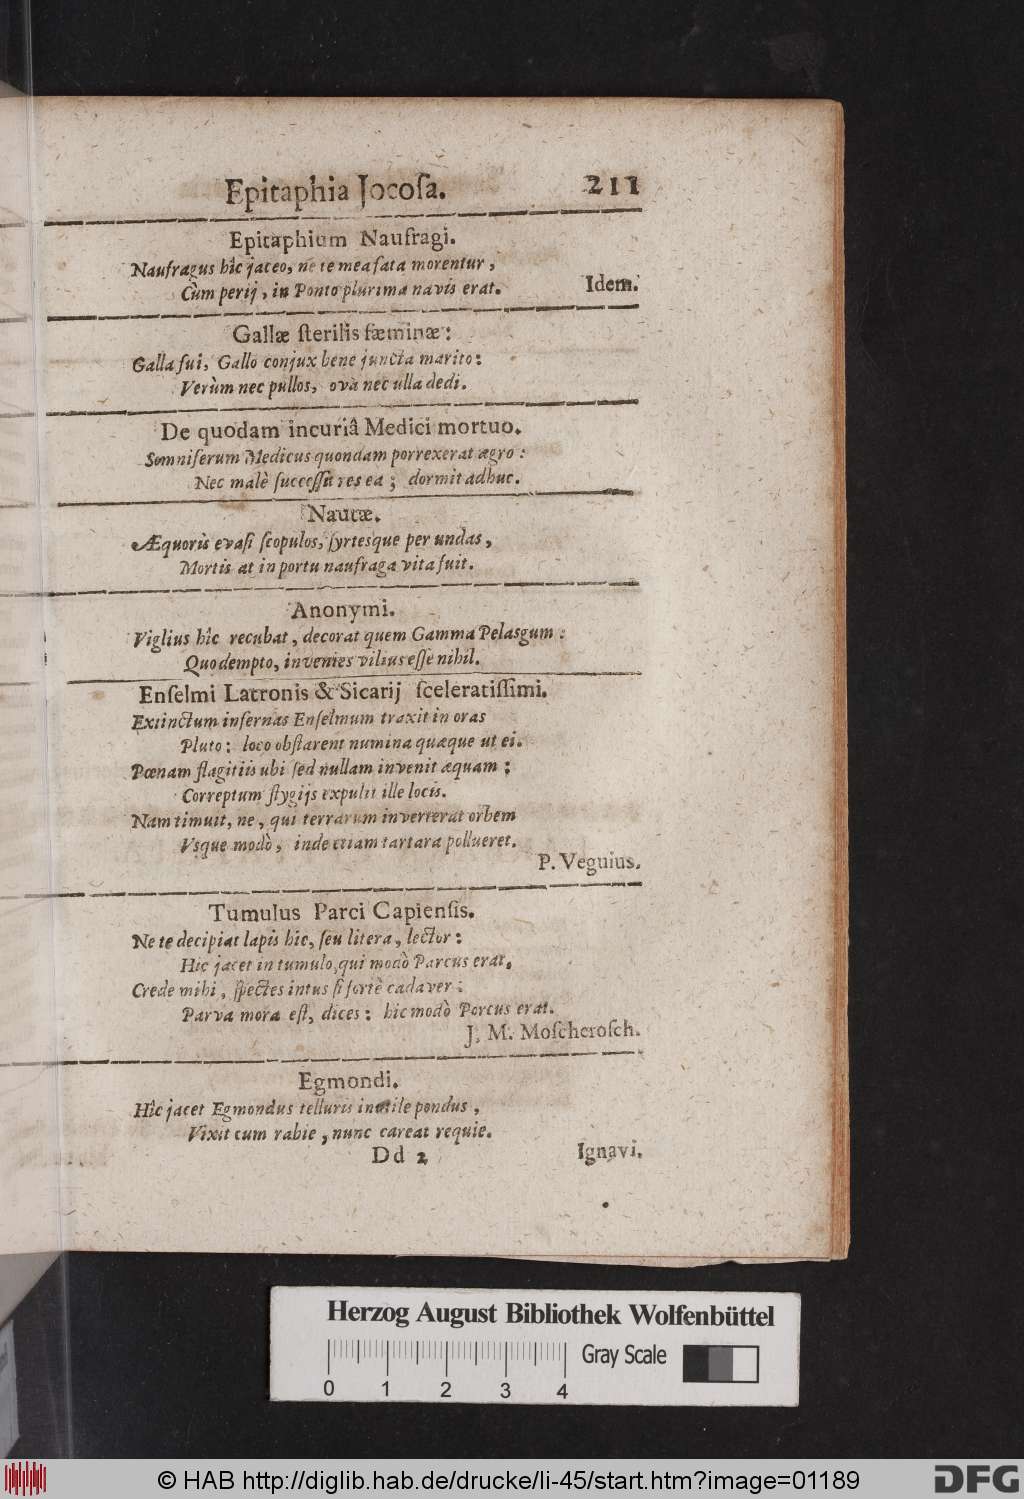 Epitaphia Jocoſa. 211
Epitaphium Naufragi.
Naufragus hîc jaceo, ne te mea fata morentur,
Cùm perij, in Ponto plurima navis erat.
Idem.
Gallæ ſterilis fæminæ:
Galla fui, Gallo conjux bene juncta marito:
Verùm nec pullos, ova nec ulla dedi.
De quodam incuriâ Medici mortuo.
Somniferum Medicus quondam porrexerat ægro:
Nec malè ſucceſſit res ea; dormit adhuc.
Nautæ.
Æquoris evaſi ſcopulos, ſyrtesque per undas,
Mortis at in portu naufraga vita fuit.
Anonymi.
Viglius hîc recubat, decorat quem Gamma Pelasgum:
Quo dempto, invenies vilius eſſe nihil.
Enſelmi Latronis & Sicarij ſceleratiſſimi.
Extinctum infernas Enſelmum traxit in oras
Pluto: loco obſtarent numina quæque ut ei.
Pœnam flagitiis ubi ſed nullam invenit æquam;
Correptum ſtygijs expulit ille locis.
Nam timuit, ne, qui terrarum inverterat orbem
Vsque modò, inde etiam tartara pollueret.
P. Veguius.
Tumulus Parci Capienſis.
Ne te decipiat lapis hic, ſeu litera, lector:
Hic jacet in tumulo, qui modò Parcus erat.
Crede mihi, ſpectes intus ſi fortè cadaver:
Parva mora eſt, dices: hic modò Porcus erat.
J. M. Moſcheroſch.
Egmondi.
Hîc jacet Egmondus telluris inutile pondus,
Vixit cum rabie, nunc careat requie.
Dd 2 Ignavi.
Herzog August Bibliothek Wolfenbüttel
0 1 2 3 4 Gray Scale
© HAB http://diglib.hab.de/drucke/li-45/start.htm?image=01189
DFG